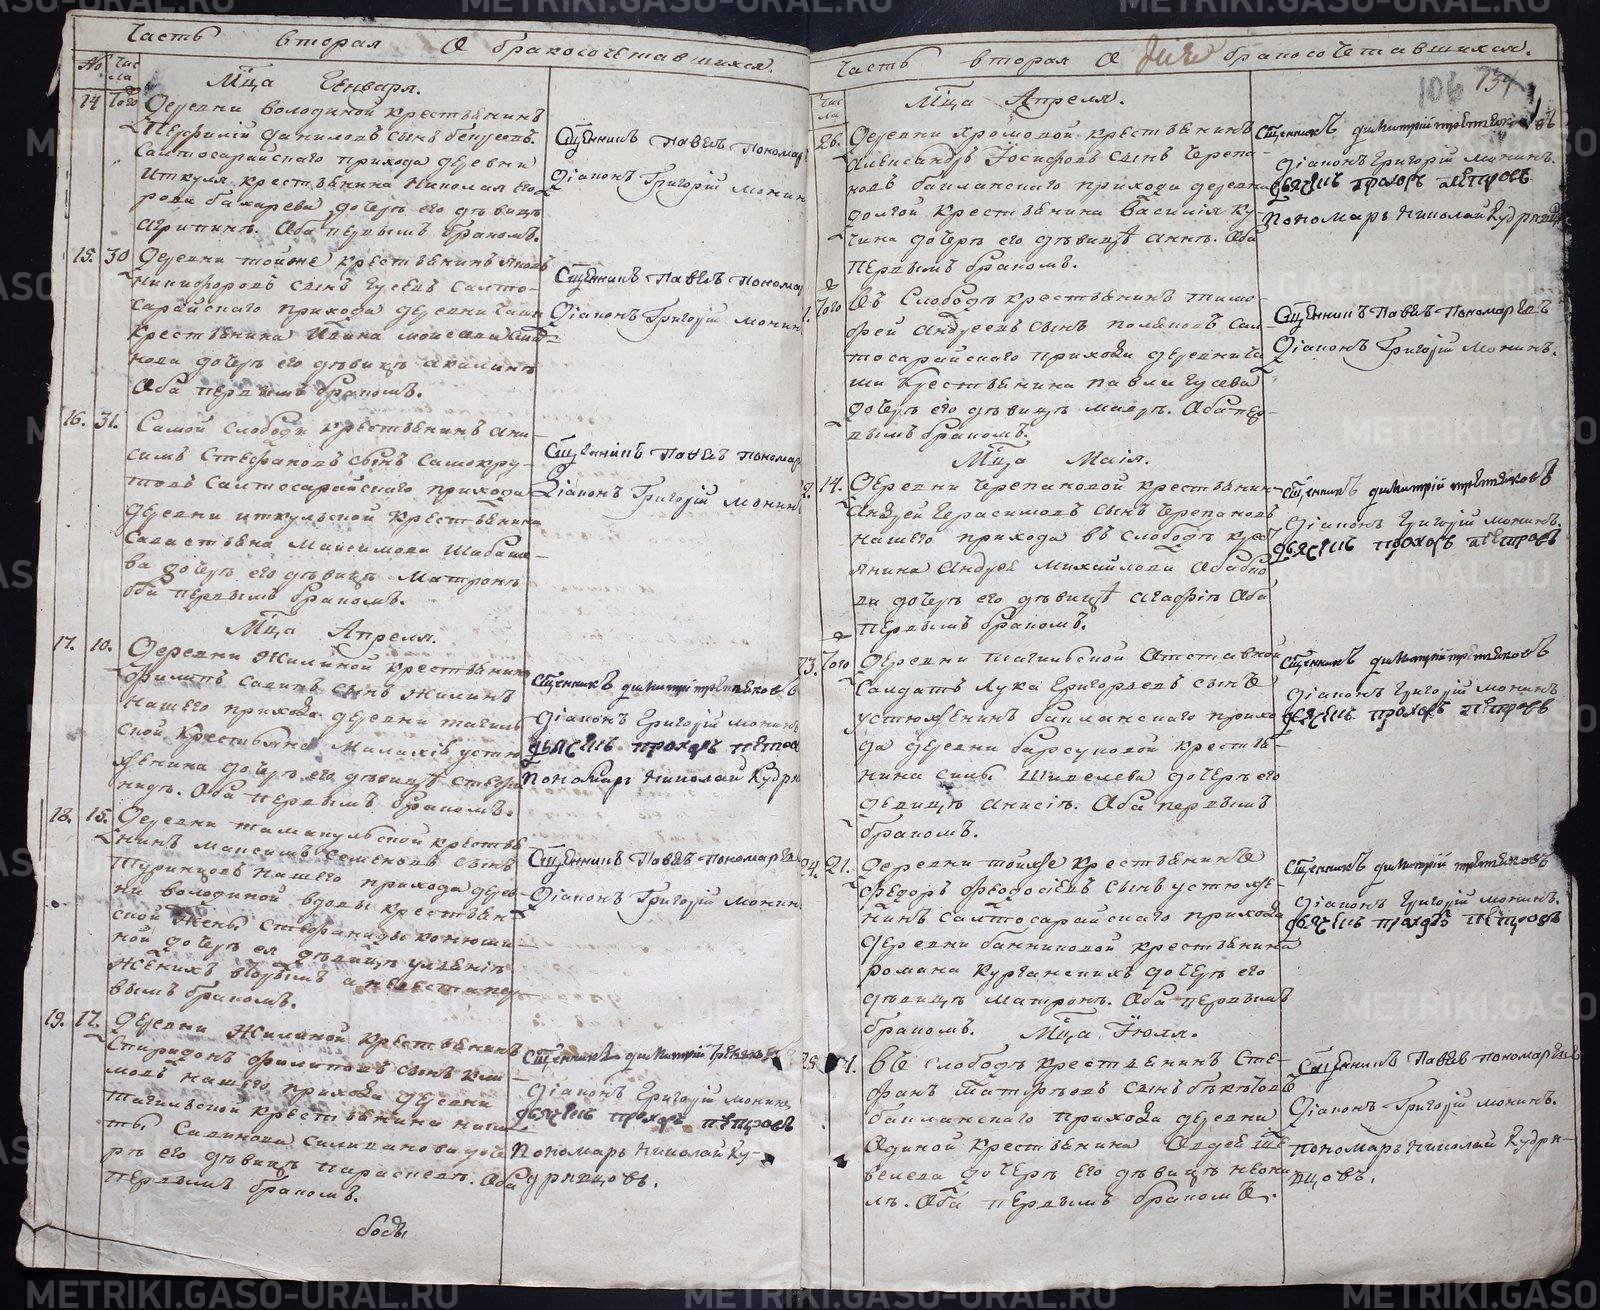 Часть вторая О бракосочетавшихся.
№ Чис
ла
Мца Генваря.
14 Того Деревни володиной крестьянинъ
данилов сынъ
Салтосарайскаго прихода деревни
Иткуля крестьянина Николая Его
рова бахарева дочерь его девицъ
Агрипинъ. Оба первымъ бракомъ.
Сщенникъ Павелъ Пономар
Діаконъ Григорій Монин
15. 30 Деревни тойже крестьянинъ Яковъ
Никифоровъ сынъ Гусевъ Салто-
сарайскаго прихода деревни Чаши
крестьянина
нова дочерь его девицъ акилинъ
Оба первымъ бракомъ.
Сщенникъ Павелъ Понома
Діаконъ Григорій Монин
16. 31. Самой слободы крестьянинъ Ани
симъ Стефановъ сынъ Самокру-
товъ Салтосарайскаго прихода
деревни иткульской крестьянина
Савастьяна Максимова Шабаши-
ва дочерь его девицъ Матронъ
оба первымъ бракомъ.
Сщенникъ Павелъ Пономар
Діаконъ Григорій Монин
Мца Апреля.
17. 10. Деревни Жилиной крестьянинъ
Филипъ савинъ сынъ Жилинъ
нашего прихода деревни тагиль
ской крестьянина Малахія устю
жанина дочерь его девицъ Стефа
нидъ. Оба первымъ бракомъ.
Сщенникъ димитрій третьяковъ
Діаконъ Григорій Монинъ
дьячекъ прохоръ петров
Пономарь Николай Кудри
18. 15. Деревни
нинъ максимъ Семеновъ сынъ
Туринцовъ нашего прихода дерев
ни володиной вдовы крестьян
ской Жены Стефаниды конюши
ной дочерь ея девицъ улъяніъ
Женихъ вторымъ а невеста пер
вымъ бракомъ.
Сщенникъ Павелъ Пономарев
Діаконъ Григорій Монин
19. 17. Деревни Жилиной крестьянинъ
Спиридонъ Филиповъ сынъ кли
мовъ нашего прихода деревни
тагильской крестьянина ники
ты Савинова Саливанова доче
ръ его девицъ параскевъ. Оба
первымъ бракомъ.
Сщенникъ димитрій третьяков
Діаконъ Григорій Монинъ
дьячекъ прохоръ петровъ
Пономарь Николай Ку-
дрявцовъ.
боды
Часть вторая О бракосочетавшихся.
106 734
Чис
ла
Мца Апреля.
26. Деревни Хромовой крестьянинъ
Александръ Іосифовъ сынъ Черепа
новъ бакланскаго прихода деревни
долгой крестьянина Василія Ку-
чина дочерь его девицъ Анна. Оба
первымъ бракомъ.
Сщенникъ димитрій третьяковъ
Діаконъ Григорій Монинъ.
дьячекъ прохоръ петровъ
Пономарь Николай Кудрявц
1. Того Въ Слободъ крестьянинъ тимо-
фей Андреевъ сынъ поляковъ Сал
тосарайскаго прихода деревни Ча
ши крестьянина павла Гусева
дочерь его девицъ мавръ. Оба пер-
вымъ бракомъ.
Сщенникъ Павелъ Пономаревъ
Діаконъ Григорій Монинъ.
Мца Маія.
2. 14. Деревни Черепановой крестьянинъ
Андрей Герасимовъ сынъ Черепановъ
нашего прихода въ слободъ крест
янина Андрея Михайлова
ва дочерь его девицъ агафіъ Оба
первымъ бракомъ.
Сщенникъ димитрій третьяковъ
Діаконъ Григорій Монинъ.
дьячекъ прохоръ петровъ
23. Того Деревни тагильской Отставной
Салдатъ Лука Григорьевъ сынъ
устюженинъ бакланскаго прихо
да деревни барсуковой крестья-
нина Шивелева дочерь его
девицъ анисіъ. Оба первымъ
бракомъ.
Сщенникъ димитрій третьяковъ
Діаконъ Григорій Монинъ
дьячекъ прохоръ петровъ
24. 21. Деревни тойже крестьянинъ
Федоръ Федосіевъ сынъ устюже
нинъ Салтосарайскаго прихода
деревни банниковой крестьянина
романа Курганскихъ дочерь его
девицъ матронъ. Оба первымъ
бракомъ.
Сщенникъ димитрій третьяковъ
Діаконъ Григорій Монинъ.
дьячекъ прохоръ петровъ
Мца Іюля.
25. 1. Въ слободъ крестьянинъ Сте-
фанъ сынъ
бакланскаго прихода деревни
Одиной крестьянина Авдея Ше
велева дочерь его девицъ неони
лъ. Оба первымъ бракомъ.
Сщенникъ Павел Пономаревъ
Діаконъ Григорій Монинъ.
Пономарь Николай Кудря-
вцовъ.